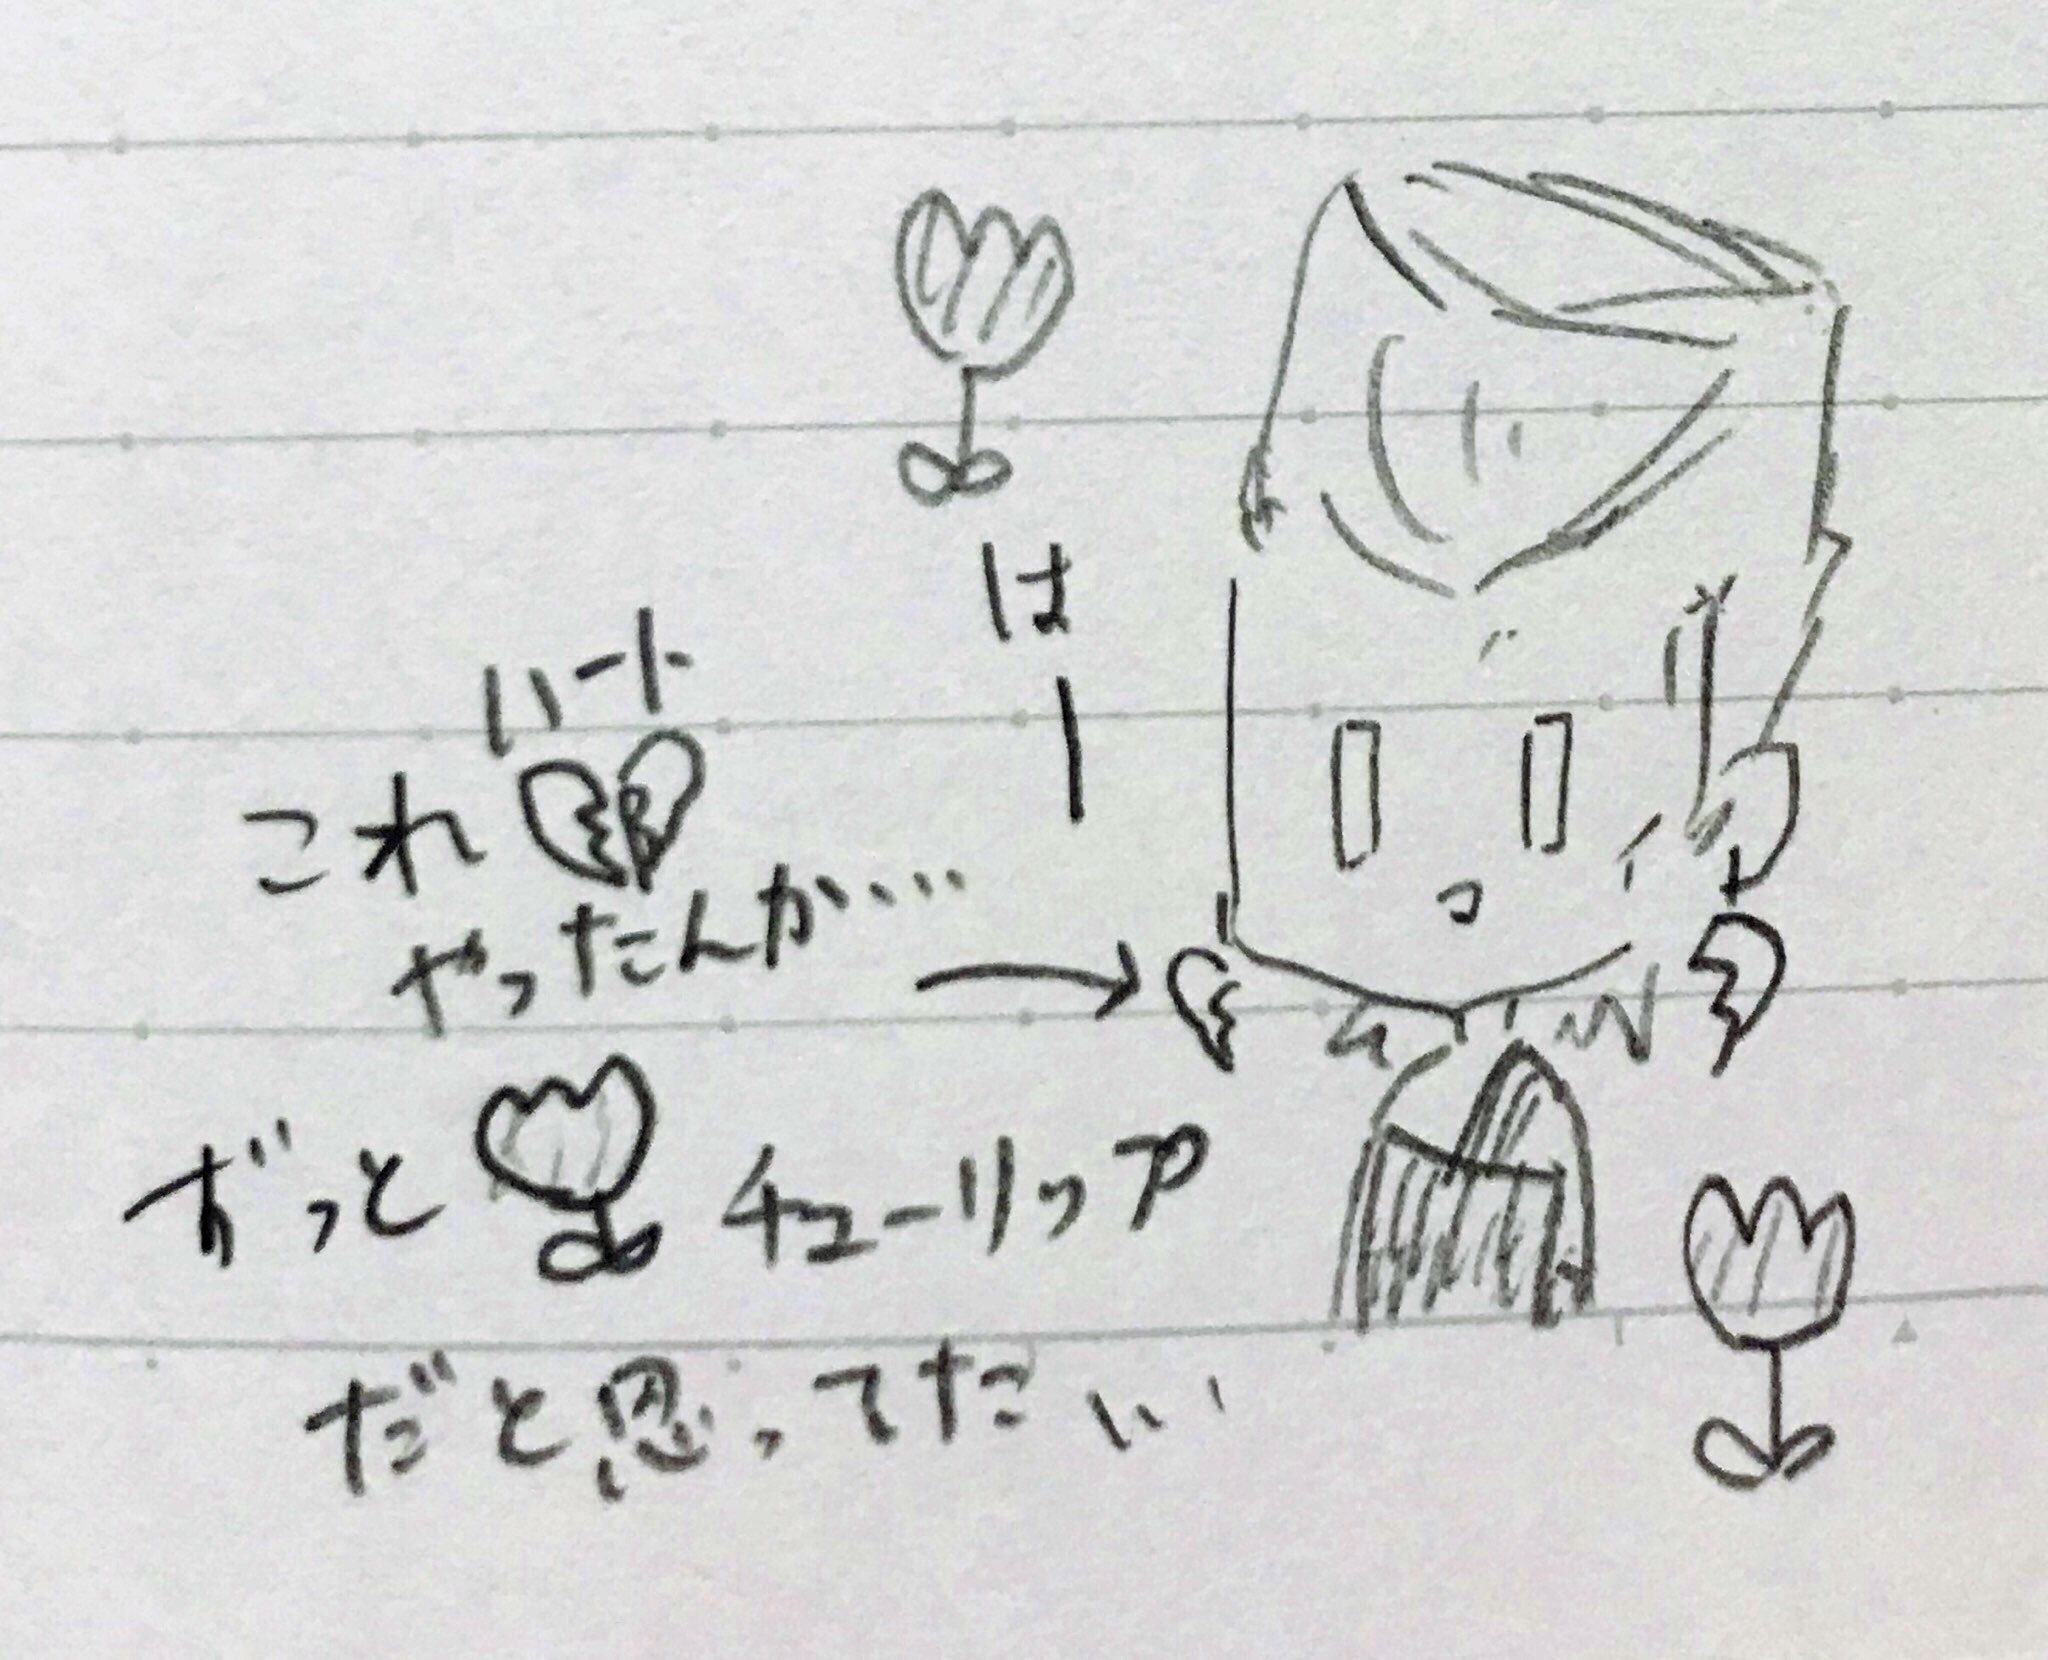 はー
ハート
これ
やったんか….
ずっと チューリップ
だと思ってた…